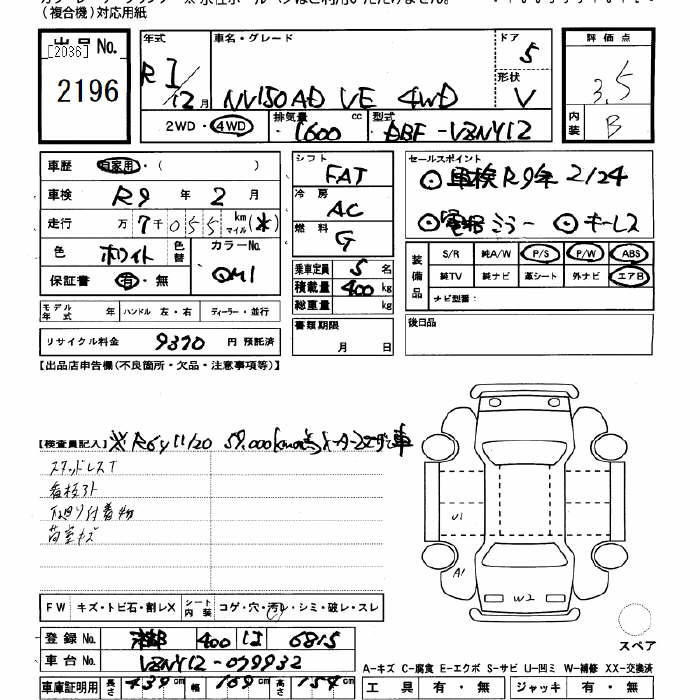 (複合機)対応用紙
出品 No. [2036] 2196
年式 R1/12月
車名・グレード NV150AD VE 4WD
ドア 5
形状 V
評価点 3.5
内装 B
2WD・4WD
排気量 1600 cc
型式 DBF-VZNY12
車歴 自家用・( )
車検 R9 年 2 月
走行 7万7千055 km マイル (※)
色 ホワイト 色替 カラーNo. QM1
保証書 有・無
シフト FAT
冷房 AC
燃料 G
乗車定員 5 名
積載量 400 kg
総重量 kg
書類期限 月 日
セールスポイント
⊙車検R9年 2/24
⊙電格ミラー ⊙キーレス
装備品 S/R 純A/W P/S P/W ABS
純TV 純ナビ 革シート 外ナビ エアB
ナビ型番:
モデル年式 年 ハンドル 左・右 ディーラー・並行
後日品
リサイクル料金 9370 円 預託済
【出品店申告欄(不良箇所・欠品・注意事項等)】
【検査員記入】 ※R6y11/20 59,000km時点 メーター交換車
スタッドレスT
看板跡
下廻り付着物
荷室キズ
U1
A1
W2
FW キズ・トビ石・割レX シート内装 コゲ・穴・汚レ・シミ・破レ・スレ
スペア
登録 No. 400 は 6815
車台 No. VZNY12-079932
A-キズ C-腐食 E-エクボ S-サビ U-凹ミ W-補修 XX-交換済
車庫証明用 長さ 439 cm 幅 169 cm 高さ 154 cm
工具 有・無 ジャッキ 有・無